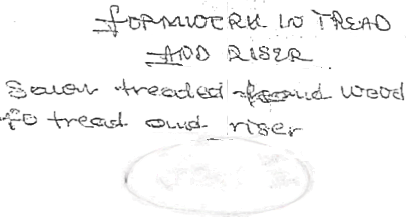 FORMWORK IN TREAD
AND RISER
Sawn treaded found wood
to tread and riser